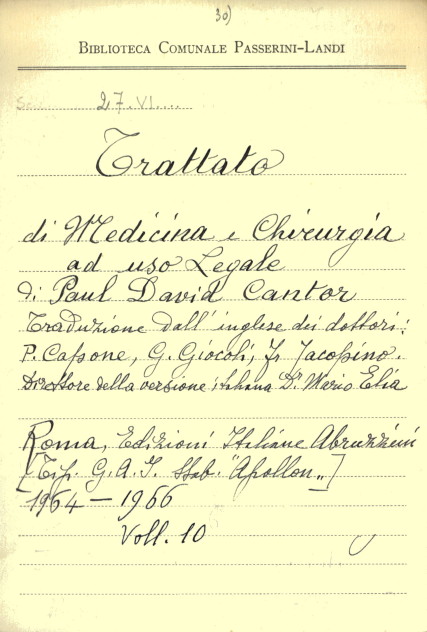 30)
BIBLIOTECA COMUNALE PASSERINI-LANDI
27. VI....
Trattato
di Medicina e Chirurgia
ad uso Legale
di Paul David Cantor
Traduzione dall' inglese dei dottori:
P. Capone, G. Giocoli, Jacopino.
Direttore della versione italiana Dr. Mario Elia
Roma, Edizioni Italiane Abruzzini
[Tip. G. A. J. Stab. "Apollon"]
1964 - 1966
Voll. 10